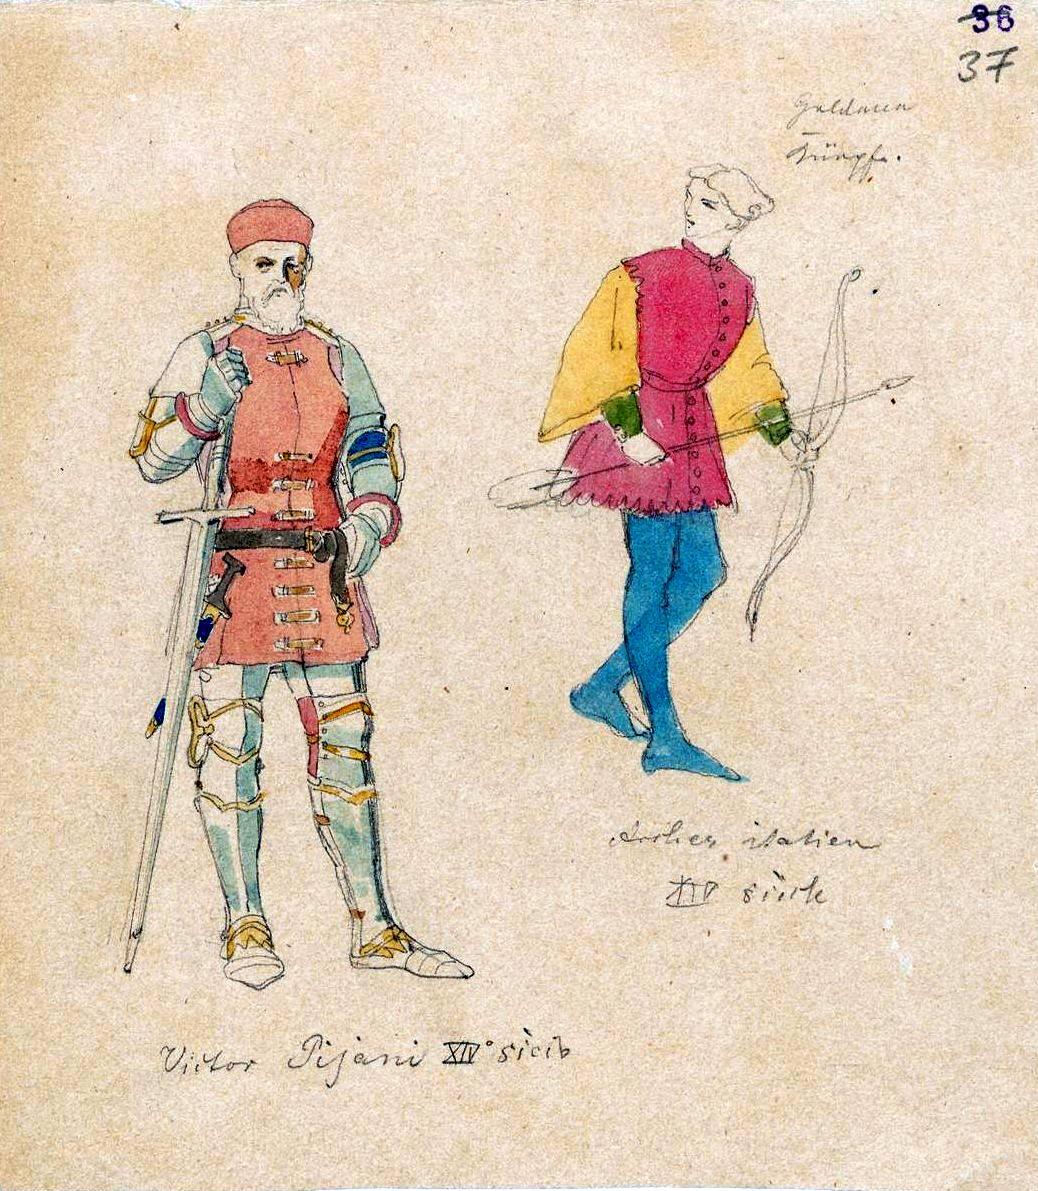 36
37
Goldene
Knöpfe.
Archer italien
XIV siècle
Victor Pisani XIV° siècle